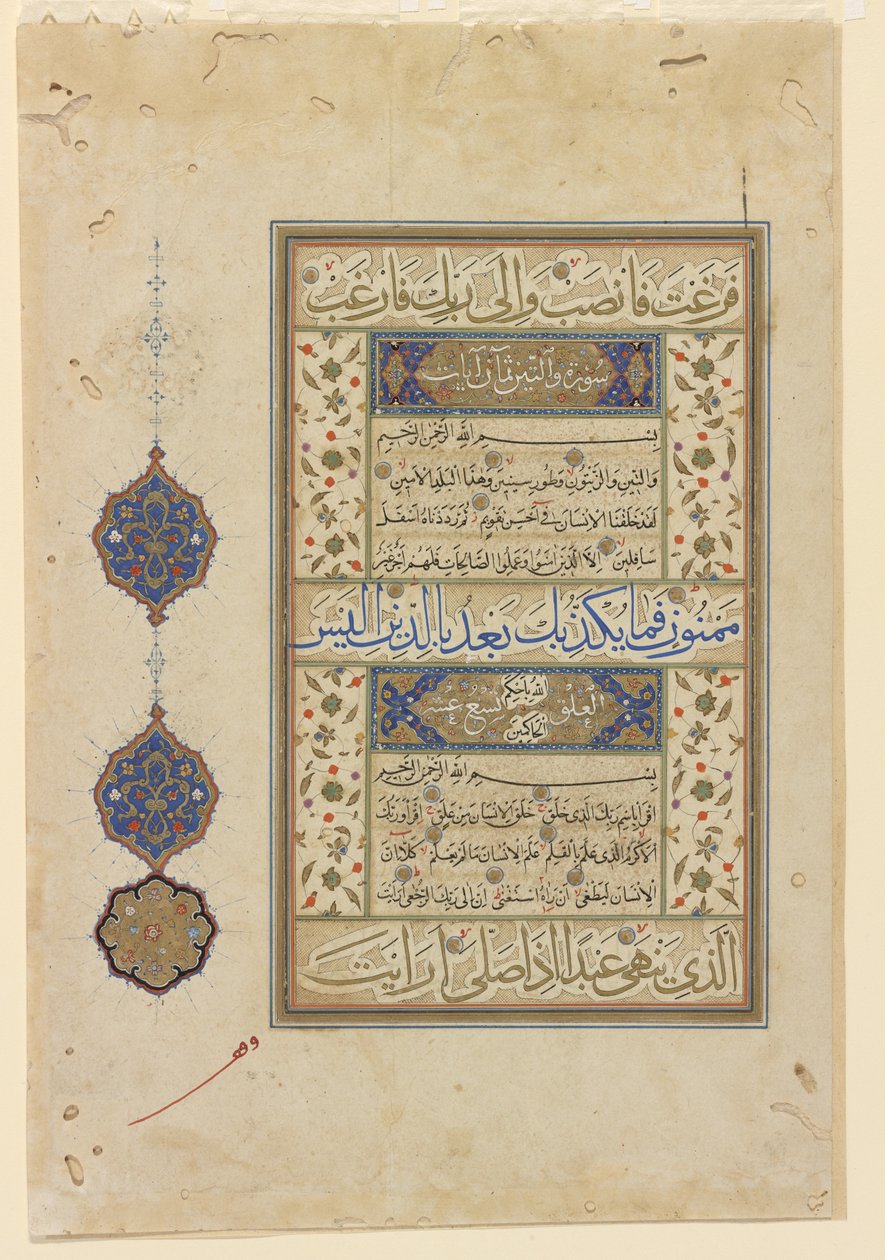 فَرَغْتَ فَانْصَبْ وَاِلٰى رَبِّكَ فَارْغَبْ
سُورَة وَالتّين ثمان آيات
بِسْمِ اللّٰهِ الرَّحْمٰنِ الرَّحِيمِ
وَالتِّينِ وَالزَّيْتُونِ وَطُورِ سِينِينَ وَهٰذَا الْبَلَدِ الْاَمِينِ
لَقَدْ خَلَقْنَا الْاِنْسَانَ فِى اَحْسَنِ تَقْوِيمٍ ثُمَّ رَدَدْنَاهُ اَسْفَلَ
سَافِلِينَ اِلَّا الَّذِينَ اٰمَنُوا وَعَمِلُوا الصَّالِحَاتِ فَلَهُمْ اَجْرٌ غَيْرُ
مَمْنُونٍ فَمَا يُكَذِّبُكَ بَعْدُ بِالدِّينِ اَلَيْسَ
اللّٰهُ بِاَحْكَمِ
العلق تسع عشر
الْحَاكِمِينَ
بِسْمِ اللّٰهِ الرَّحْمٰنِ الرَّحِيمِ
اِقْرَاْ بِاسْمِ رَبِّكَ الَّذِى خَلَقَ خَلَقَ الْاِنْسَانَ مِنْ عَلَقٍ اِقْرَاْ وَرَبُّكَ
الْاَكْرَمُ الَّذِى عَلَّمَ بِالْقَلَمِ عَلَّمَ الْاِنْسَانَ مَا لَمْ يَعْلَمْ كَلَّا اِنَّ
الْاِنْسَانَ لَيَطْغٰى اَنْ رَاٰهُ اسْتَغْنٰى اِنَّ اِلٰى رَبِّكَ الرُّجْعٰى اَرَاَيْتَ
الَّذِى يَنْهٰى عَبْدًا اِذَا صَلّٰى اَرَاَيْتَ